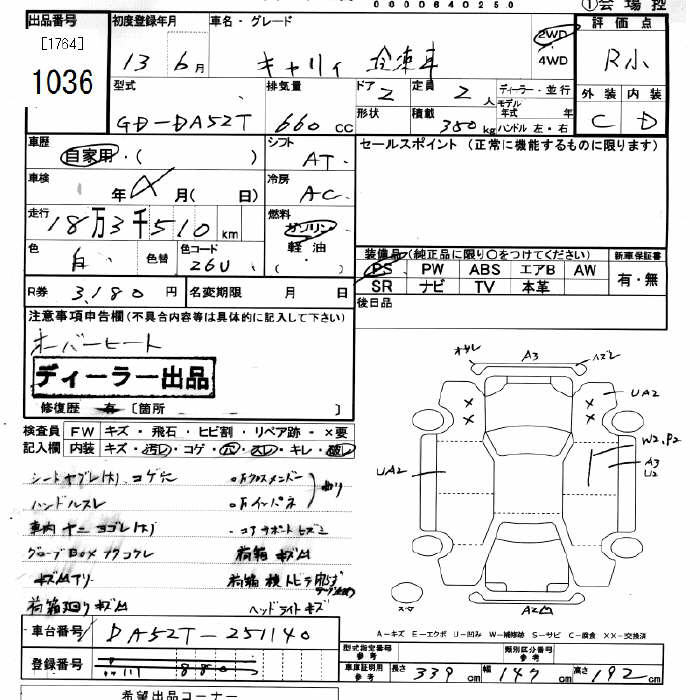 0000640250 ①会場控
出品番号 初度登録年月 車名・グレード 評価点
[1764] 13 6月 キャリィ 冷凍車 2WD R小
1036 4WD
型式 排気量 ドア 2 定員 2人 ディーラー・並行 外装 内装
GD-DA52T 660cc 形状 積載 350kg モデル年式 年 ハンドル 左・右 C D
車歴 シフト セールスポイント (正常に機能するものに限ります)
自家用・( ) AT
車検 年 月( 日) 冷房 AC
走行 18万3千510km 燃料 ガソリン
色 白 色替 色コード 26U 軽油 ( )
装備品(純正品に限り○をつけてください) 新車保証書
PS PW ABS エアB AW 有・無
SR ナビ TV 本革
R券 3,180円 名変期限 月 日 後日品
注意事項申告欄(不具合内容等は具体的に記入して下さい)
オーバーヒート
ディーラー出品
修復歴 有 [箇所 ]
検査員 FW キズ・飛石・ヒビ割・リペア跡・×要
記入欄 内装 キズ・汚レ・コゲ・穴・スレ・キレ・破レ
シートヤブレ(大) コゲ穴
ハンドルスレ
車内ヤニヨゴレ(大)
グローブBOXフタコワレ
荷箱廻りキズ凹
右Fクロスメンバー
右Fインパネ
曲り
コアサポートヒズミ
荷箱キズ凹
ヘッドライトキズ
A3
UA2
W2,P2
A3
U2
UA2
A2凹
A-キズ E-エクボ U-凹み W-補修跡 S-サビ C-腐食 XX-交換済
車台番号 DA52T-251140
登録番号 111 880
型式指定番号 参考 類別区分番号 参考
車庫証明用 参考 長さ 339cm 幅 147cm 高さ 192cm
希望出品コーナー